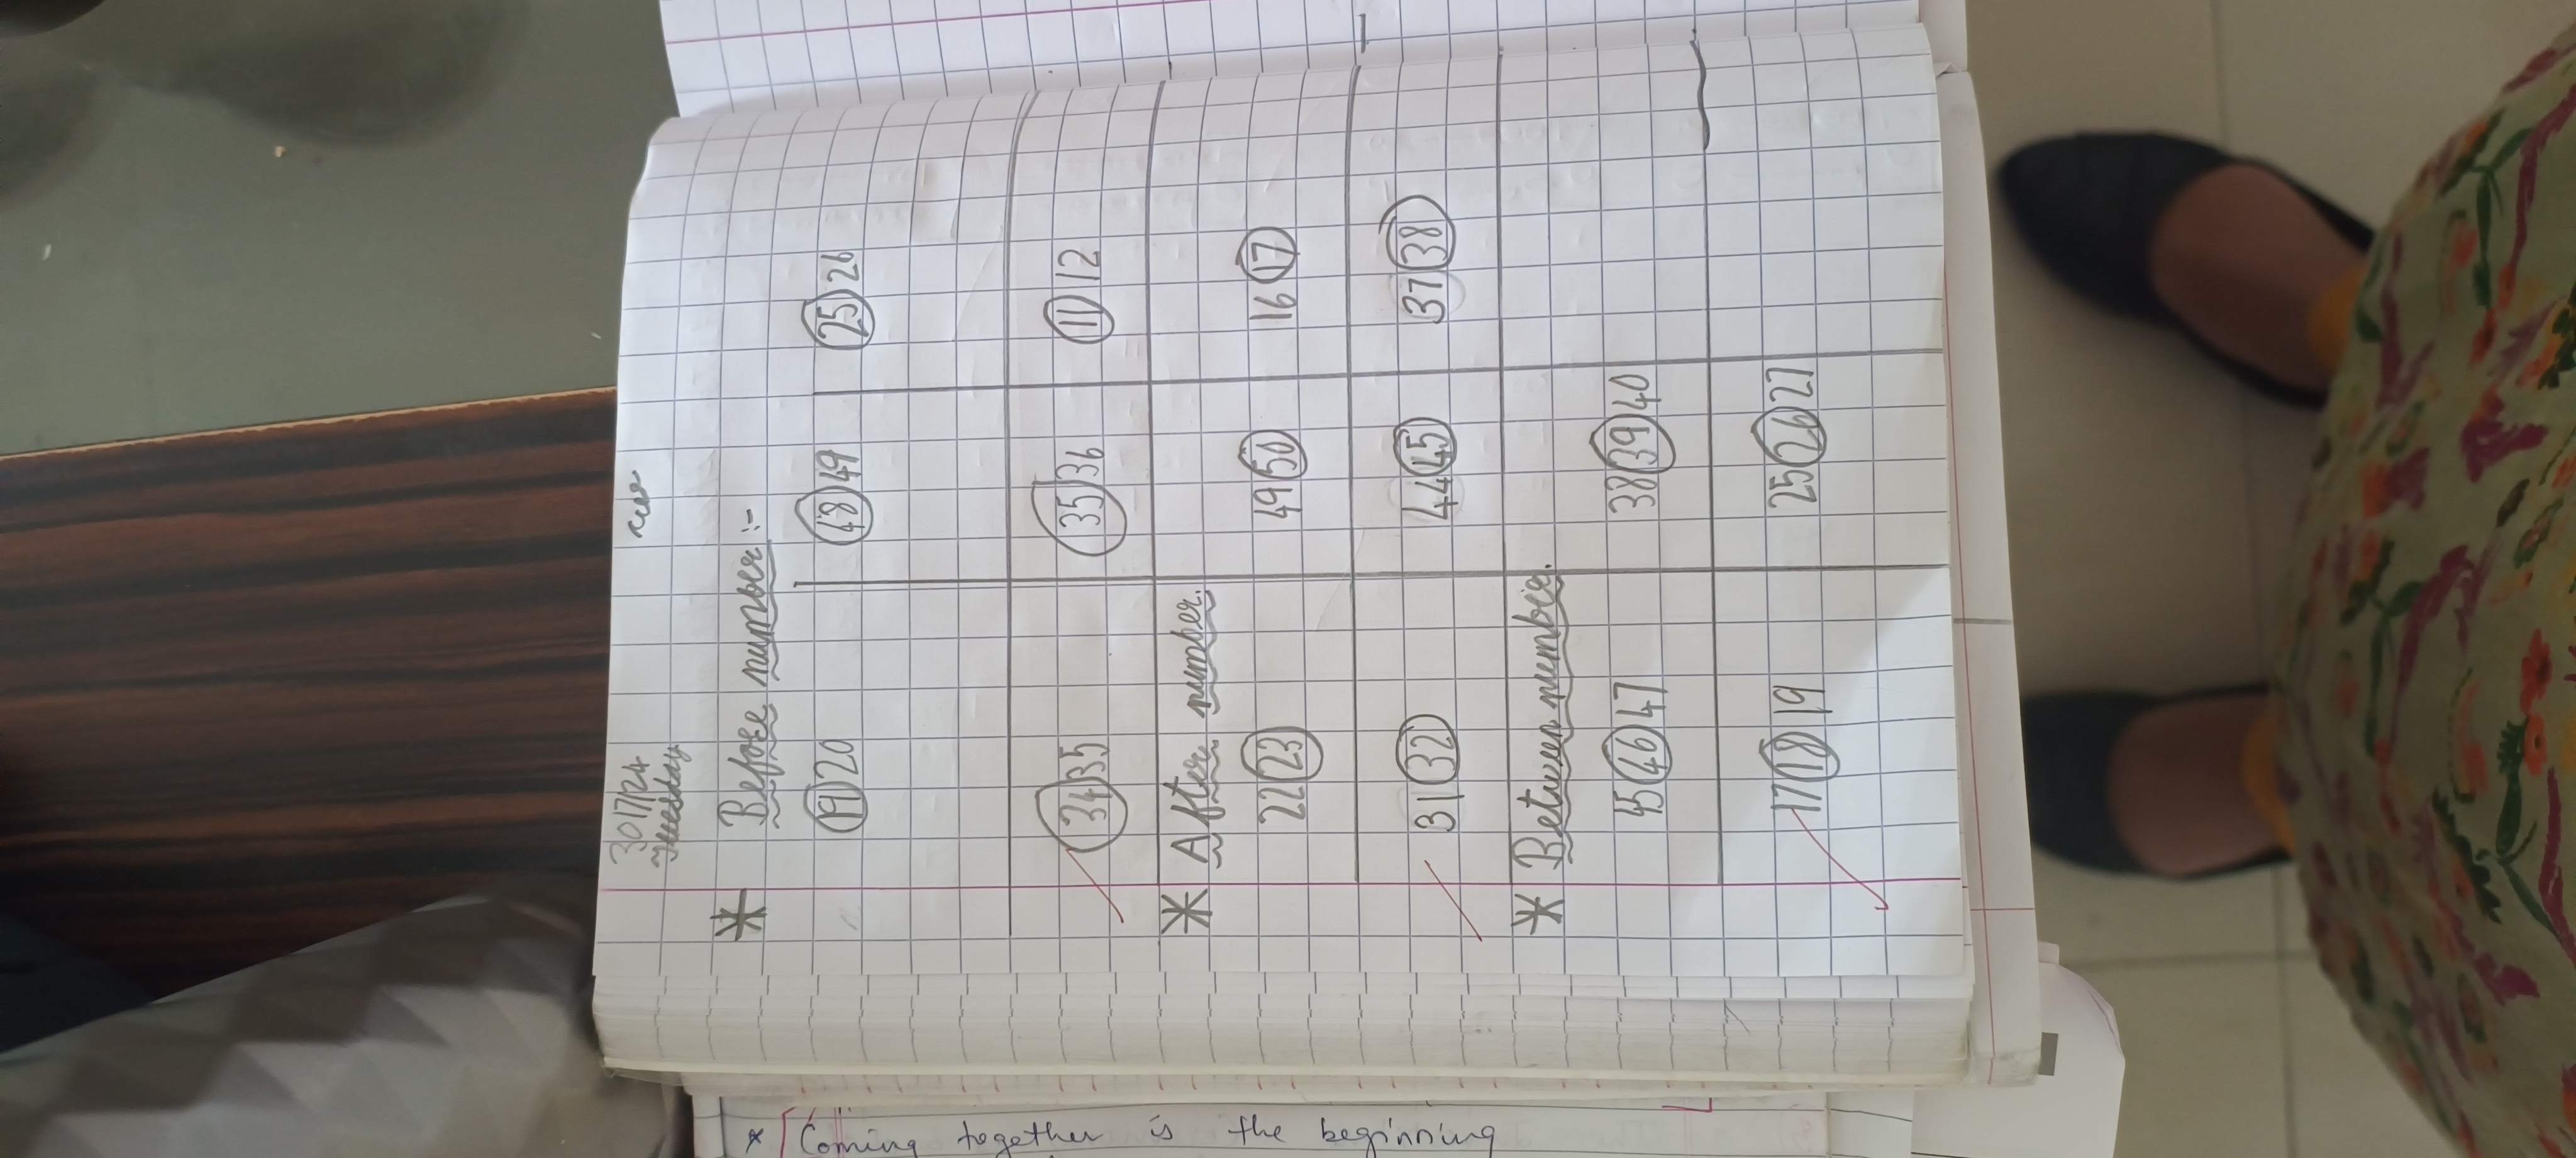 30/7/24
Tuesday
* Before number:-
19 20 48 49 25 26
34 35 35 36 11 12
* After number.
22 23 49 50 16 17
31 32 44 45 37 38
* Between number.
45 46 47 38 39 40
17 18 19 25 26 27
* Coming together is the beginning